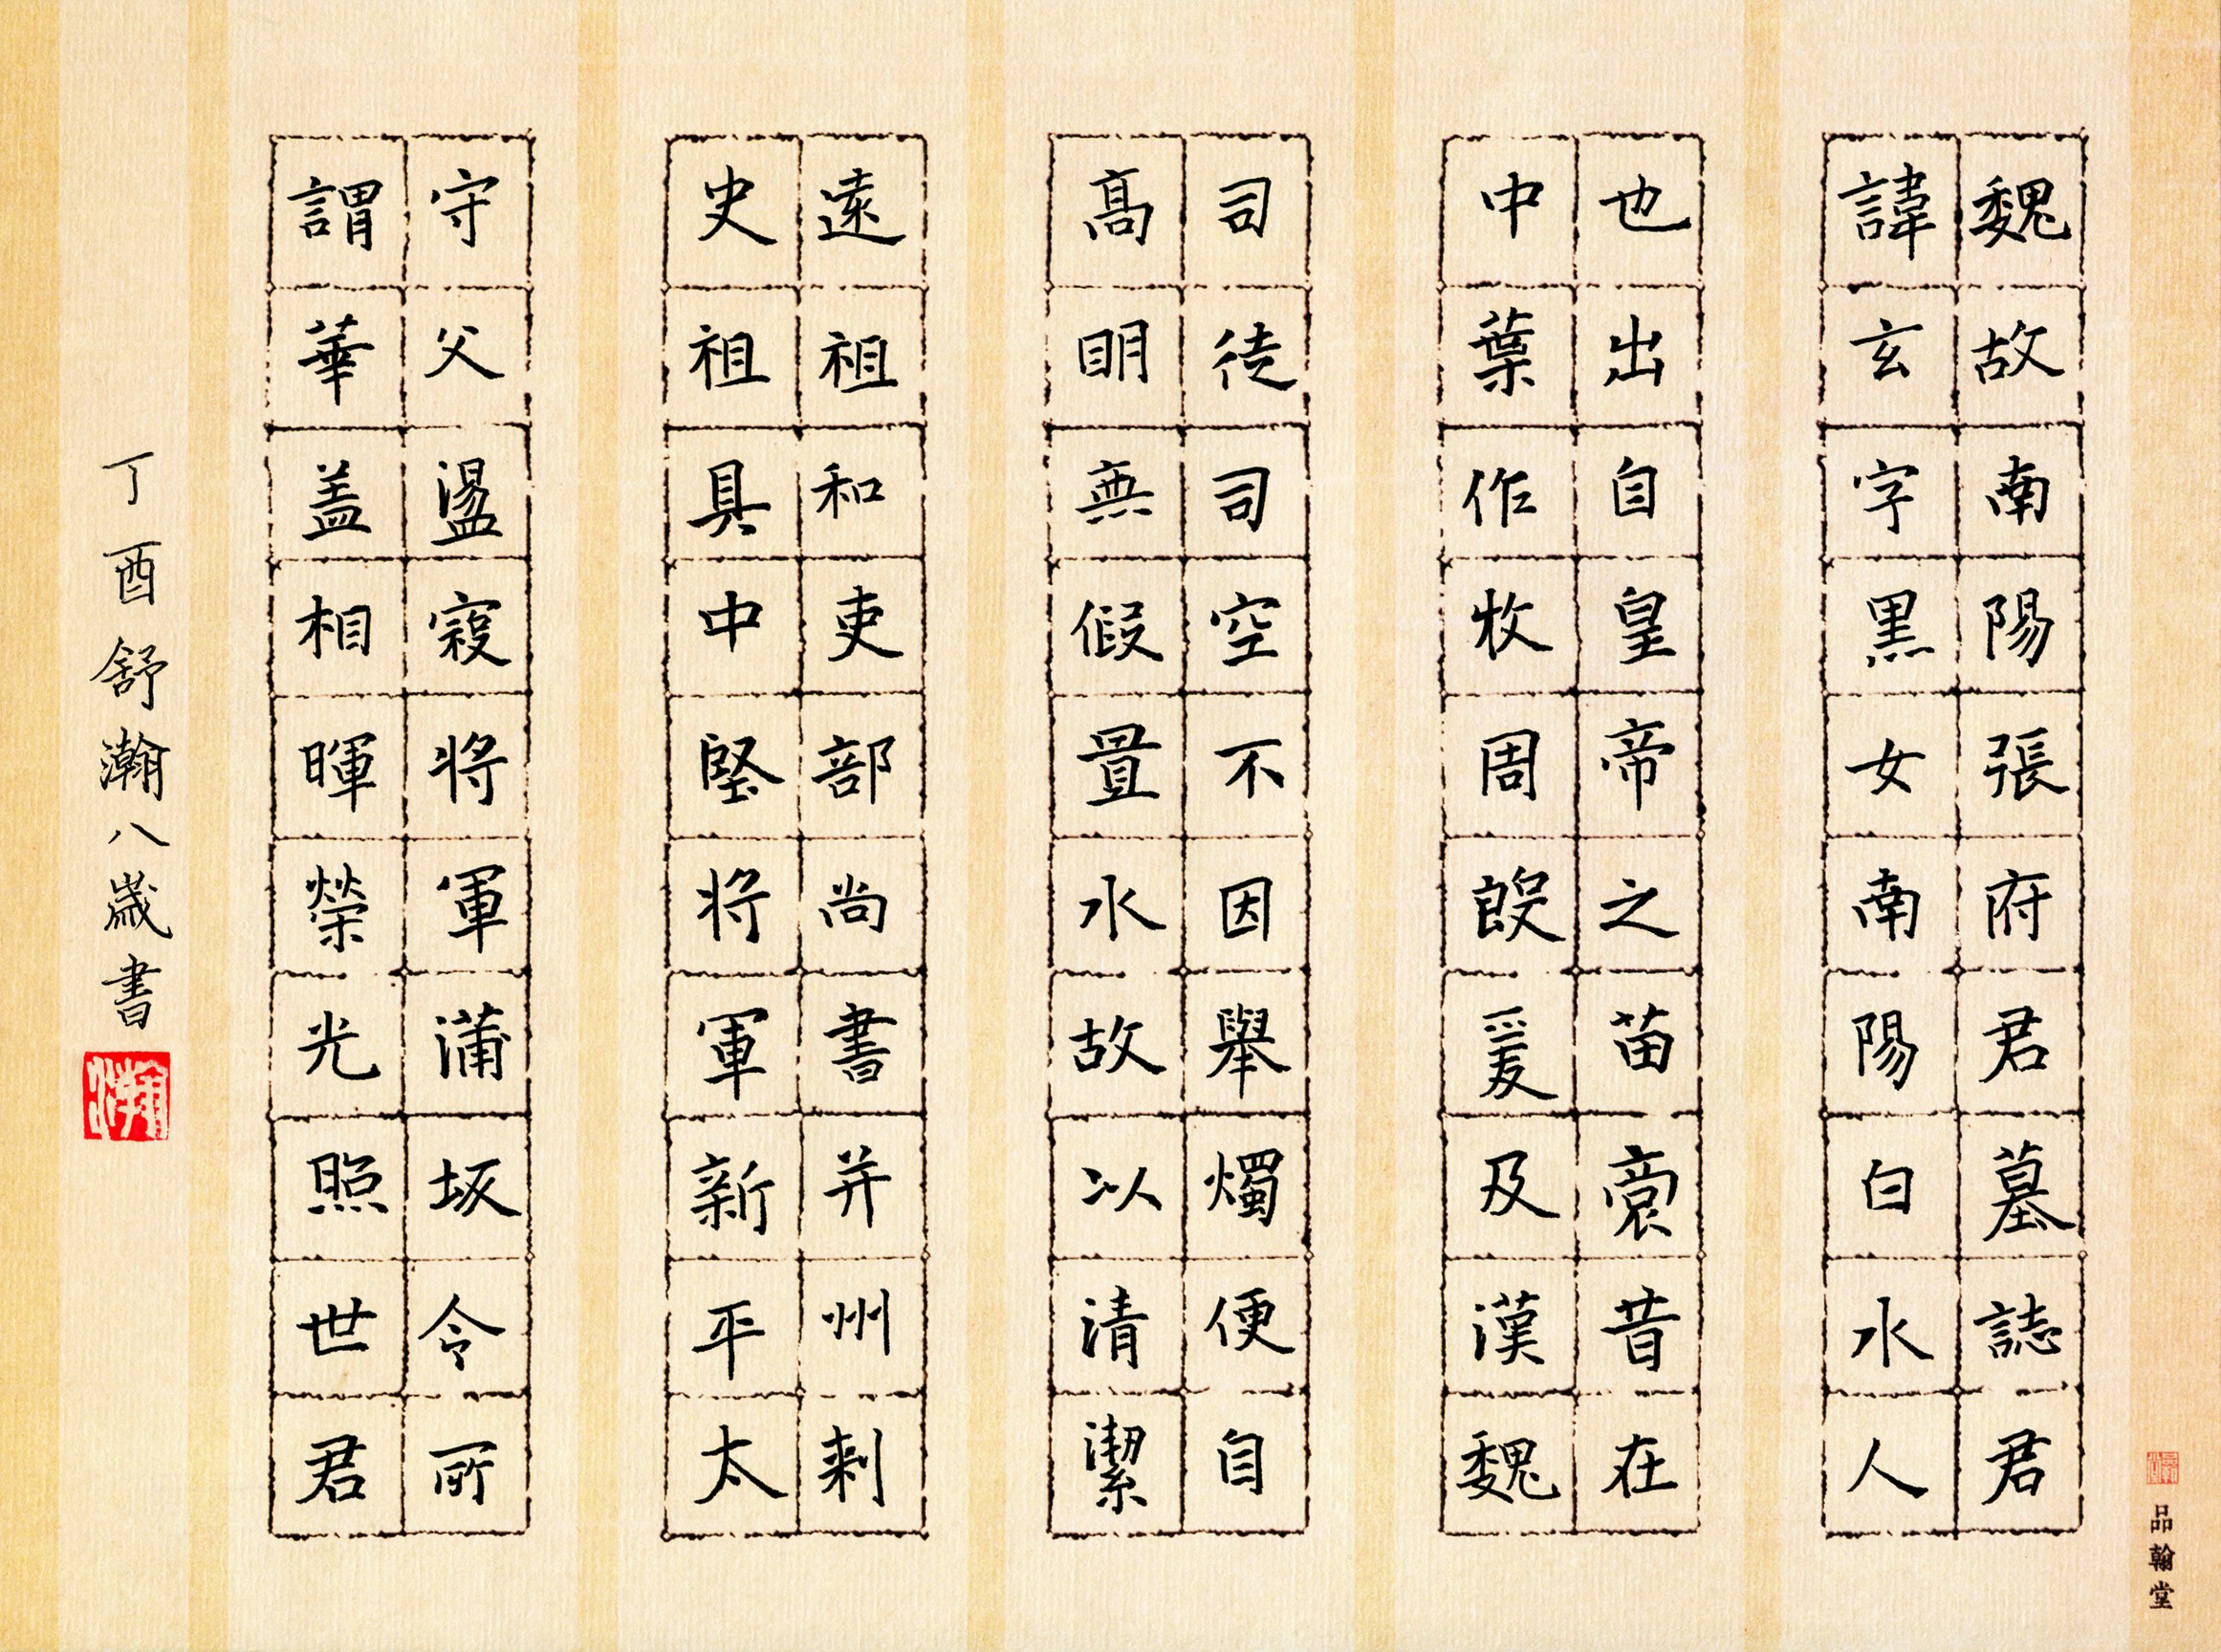 魏故南陽張府君墓誌君
諱玄字黑女南陽白水人
也出自皇帝之苗裔昔在
中葉作牧周殷爰及漢魏
司徒司空不因舉燭便自
高明無假置水故以清潔
遠祖和吏部尚書并州刺
史祖具中堅將軍新平太
守父盪寇將軍蒲坂令所
謂華蓋相暉榮光照世君
丁酉舒瀚八歲書
品翰堂